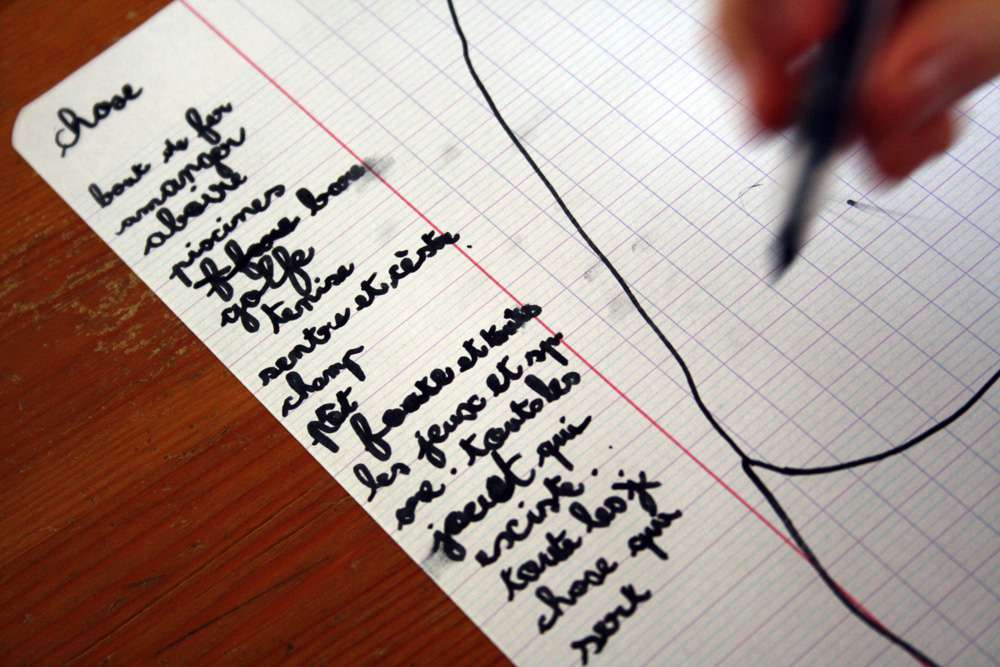 chose
bout de fer
amanger
aboire
piscines
golfe
tenise
sentre et
champ
pôt
foote et touts
les jeux et sp
ore. touts les
jouet qui
exciste.
toute les
chose qui
sert